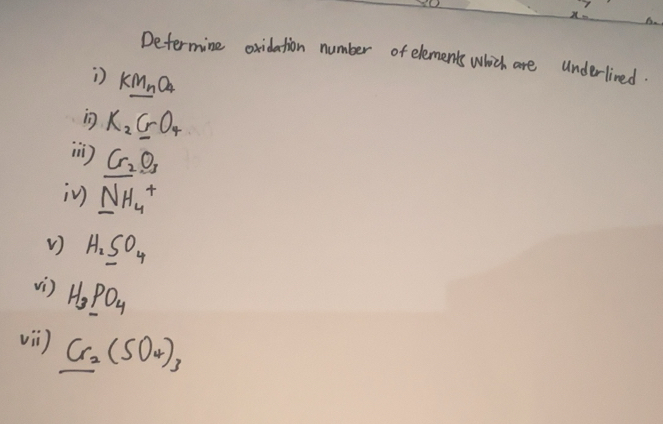 Determine oxidation number of elements which are underlined.
i) KMnO4
ii) K2CrO4
iii) Cr2O3
iv) NH4+
v) H2SO4
vi) H3PO4
vii) Cr2(SO4)3